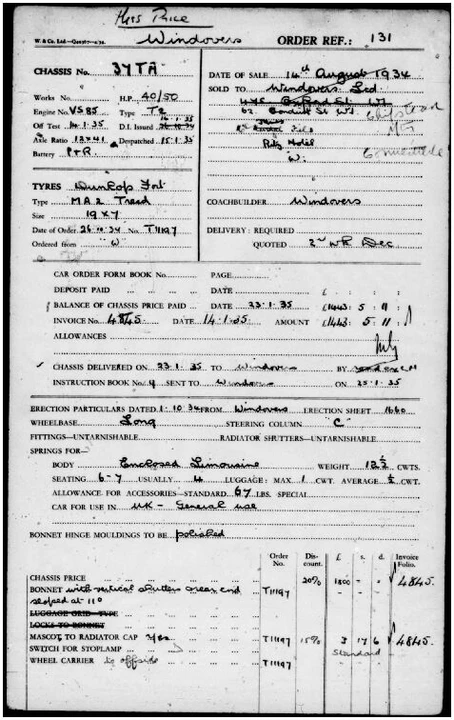 Hers Price
W. & Co. Ltd. Windovers ORDER REF.: 131
CHASSIS No. 37TA
DATE OF SALE 14th August 1934
Works No. H.P. 40/50
SOLD TO Windovers Ltd
Engine No. VS85 Type T2
Off Test 14.1.35 D.I. Issued 26.10.34
14.1.35
62 Conduit St W1
Axle Ratio 12x41 Despatched 15.1.35
Battery P+R
Ritz Hotel
W.
TYRES Dunlop Fort
Type MA.2 Tread
COACHBUILDER Windovers
Size 19x7
Date of Order 26.10.34 No. T11197
DELIVERY: REQUIRED
Ordered from "W"
QUOTED 2nd wk Dec
CAR ORDER FORM BOOK No. PAGE
DEPOSIT PAID DATE £ : :
BALANCE OF CHASSIS PRICE PAID DATE 23.1.35 £1443: 5: 11
INVOICE No. 4845. DATE 14.1.35 AMOUNT £1443: 5: 11
ALLOWANCES
CHASSIS DELIVERED ON 23.1.35 TO Windovers BY
INSTRUCTION BOOK No. 4 SENT TO Windovers ON 25.1.35
ERECTION PARTICULARS DATED 1.10.34 FROM Windovers ERECTION SHEET 1660
WHEELBASE Long STEERING COLUMN "C"
FITTINGS—UNTARNISHABLE RADIATOR SHUTTERS—UNTARNISHABLE
SPRINGS FOR—
BODY Enclosed Limousine WEIGHT 12½ CWTS.
SEATING 6-7 USUALLY 4 LUGGAGE: MAX. 1 CWT. AVERAGE ½ CWT.
ALLOWANCE FOR ACCESSORIES—STANDARD 67 LBS. SPECIAL
CAR FOR USE IN UK - General use
BONNET HINGE MOULDINGS TO BE polished
Order No. Discount. £ s. d. Invoice Folio.
CHASSIS PRICE 20% 1800 - - 4845.
BONNET with vertical shutters areas and T11197
sloped at 11°
LUGGAGE GRID—TYPE
LOCKS TO BONNET
MASCOT TO RADIATOR CAP Yes T11197 15% 3 17 6 4845.
SWITCH FOR STOPLAMP Standard
WHEEL CARRIER to offside T11197